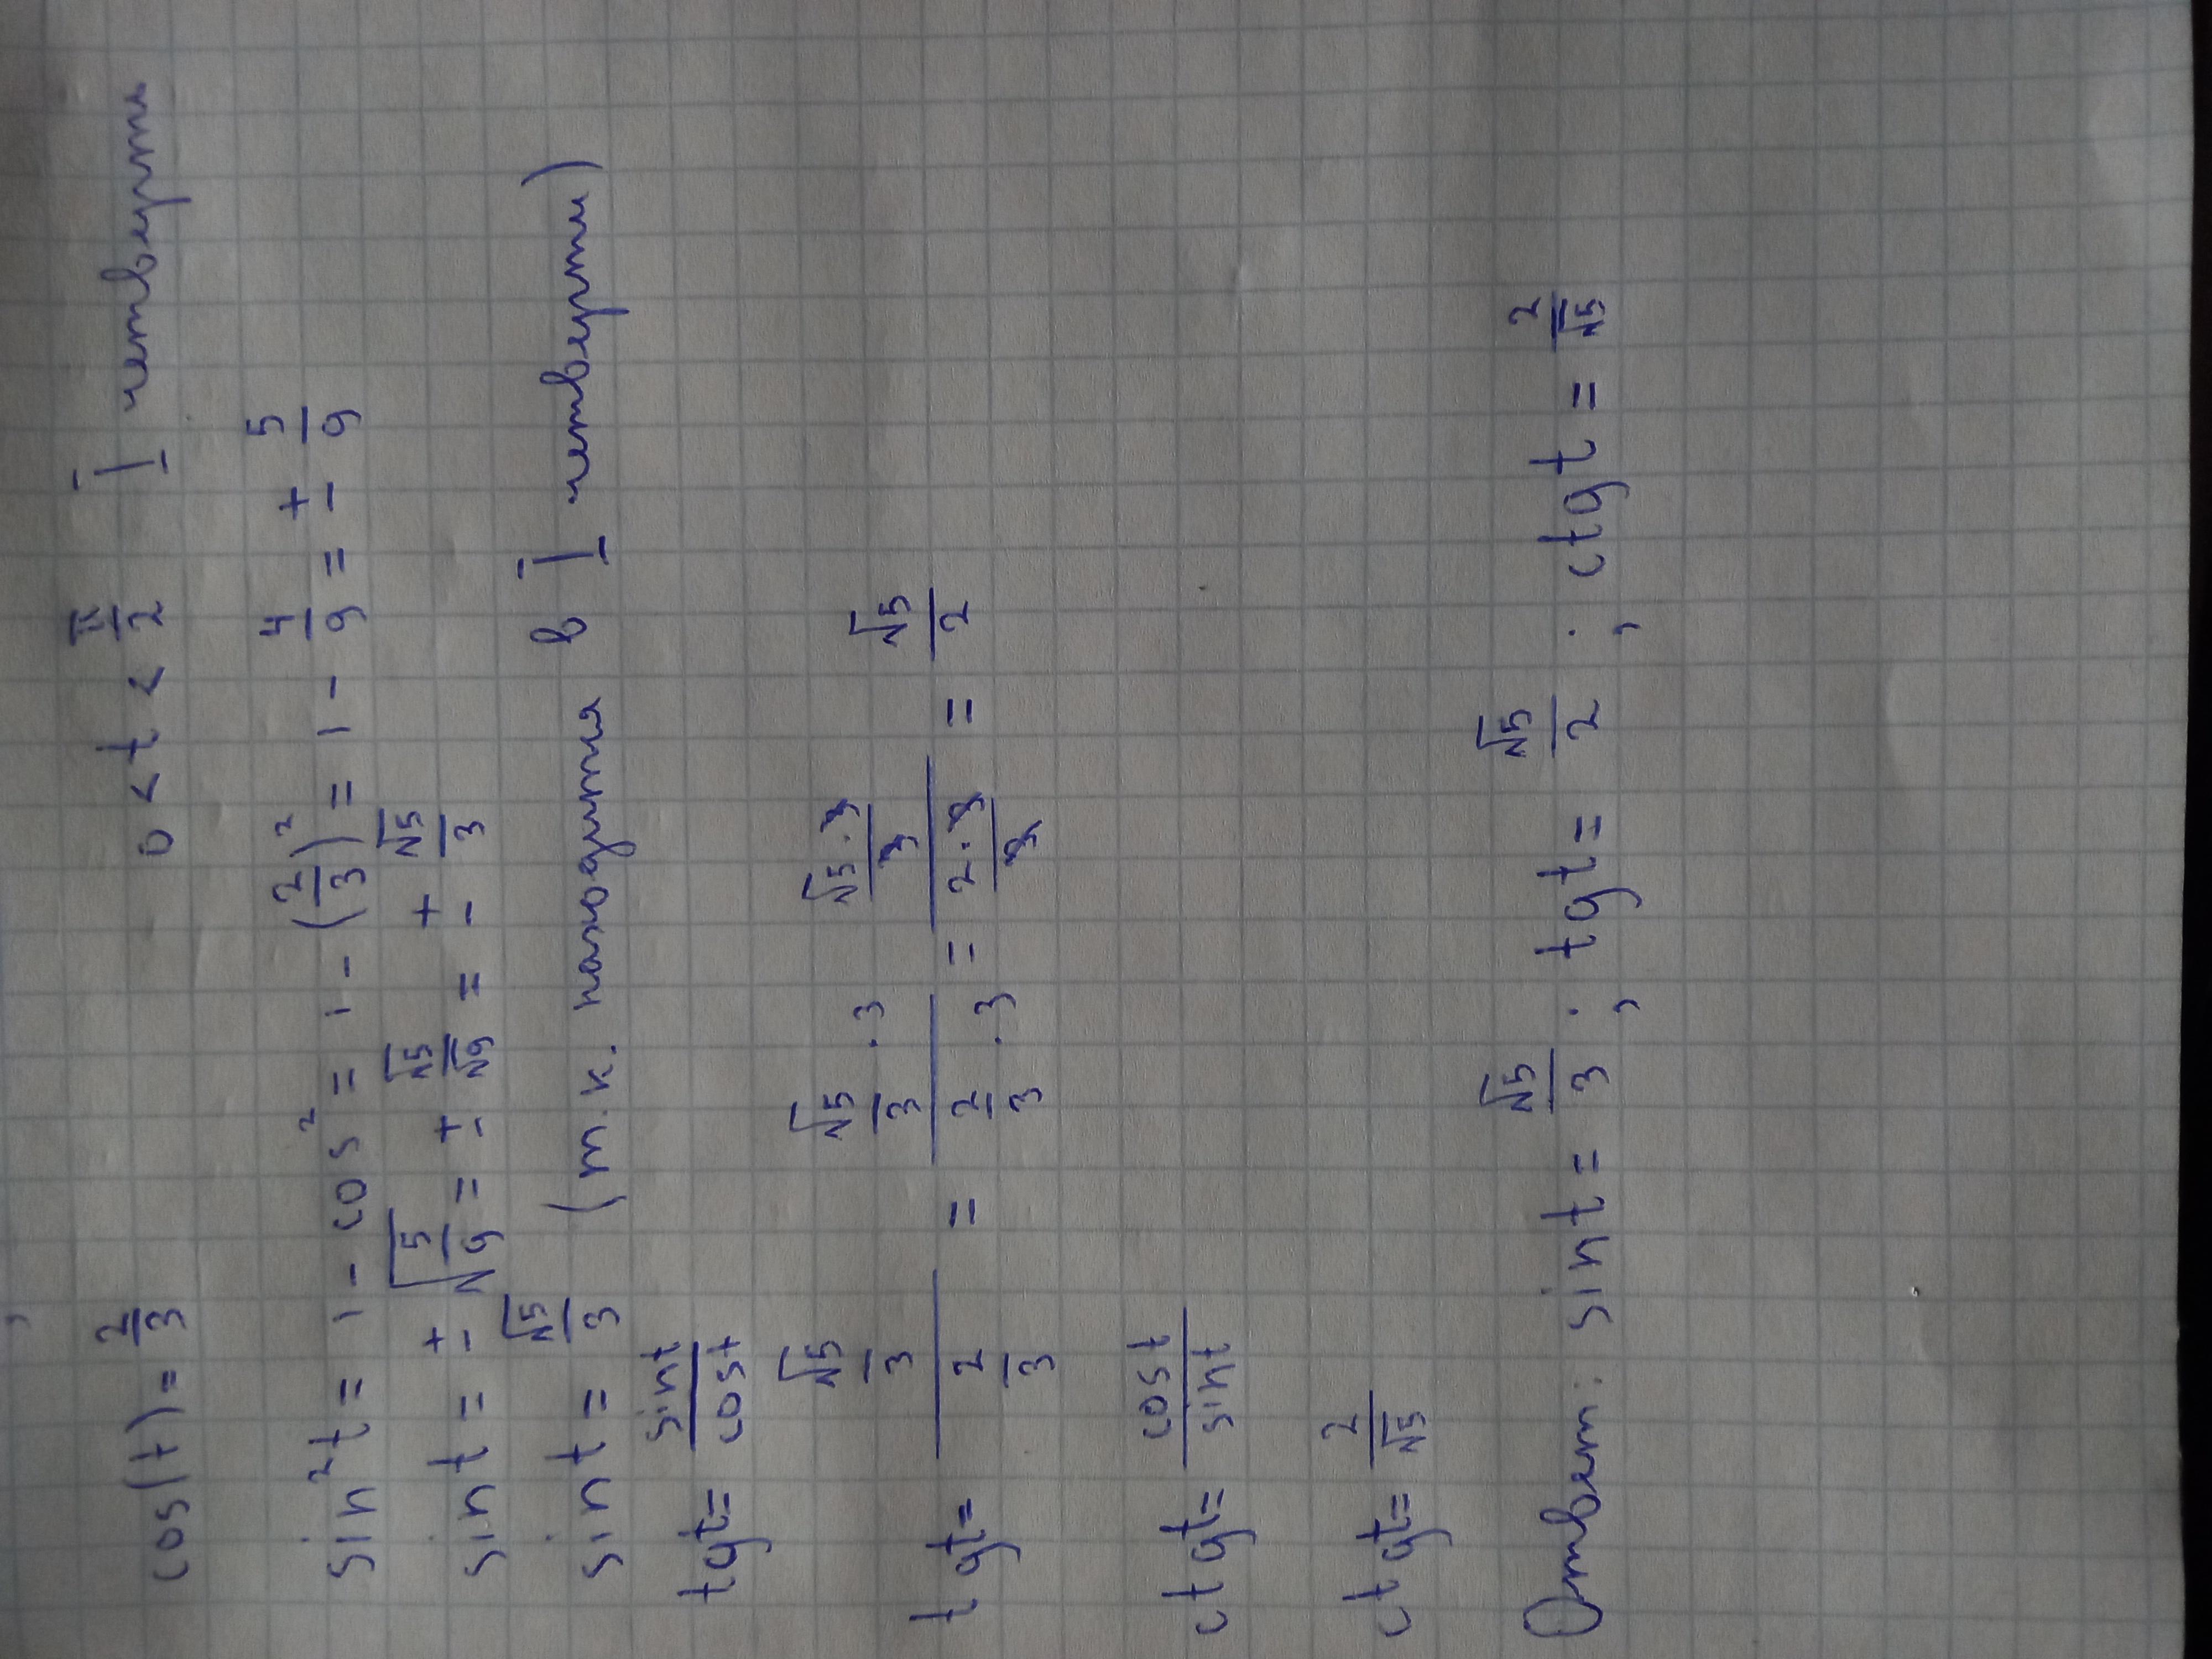 cos(t) = 2/3 0 < t < π/2 I четверти
sin²t = 1 - cos² = 1 - (2/3)² = 1 - 4/9 = ± 5/9
sin t = ± √(5/9) = ± √5/√9 = ± √5/3
sin t = √5/3 (т.к. находится в I четверти)
tgt = sint/cost
tgt = (√5/3)/(2/3) = (√5/3 · 3)/(2/3 · 3) = (√5·3/3)/(2·3/3) = √5/2
ctgt = cost/sint
ctgt = 2/√5
Ответ: sint = √5/3; tgt = √5/2; ctgt = 2/√5